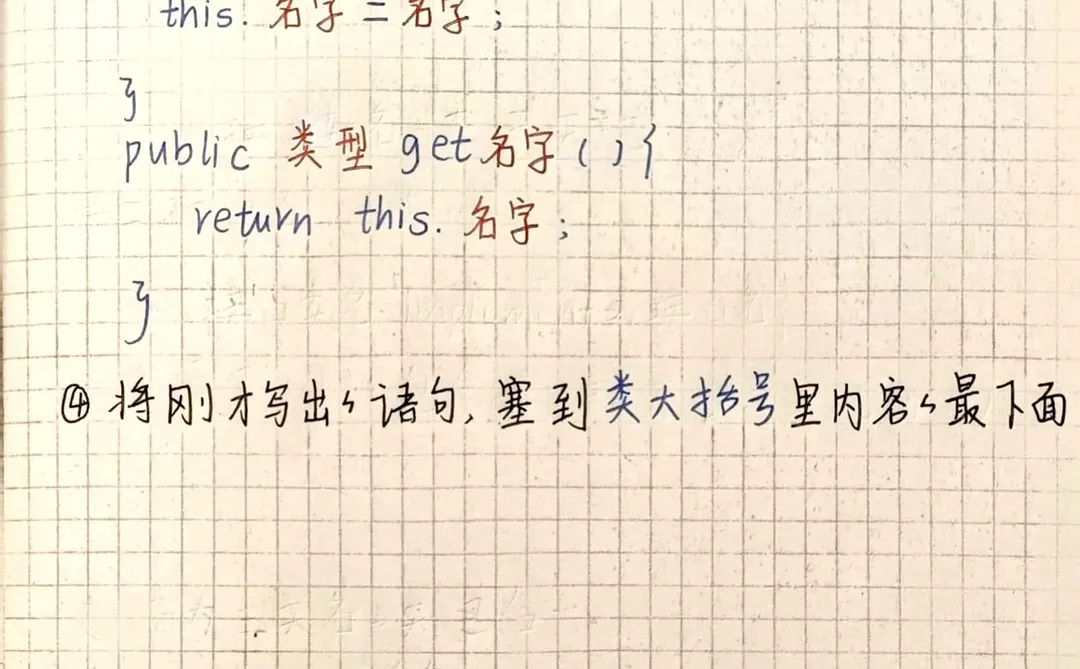 this. 名字 = 名字;
}
public 类型 get名字(){
return this. 名字;
}
④ 将刚才写出ㄣ语句, 塞到类大括号里内容ㄣ最下面